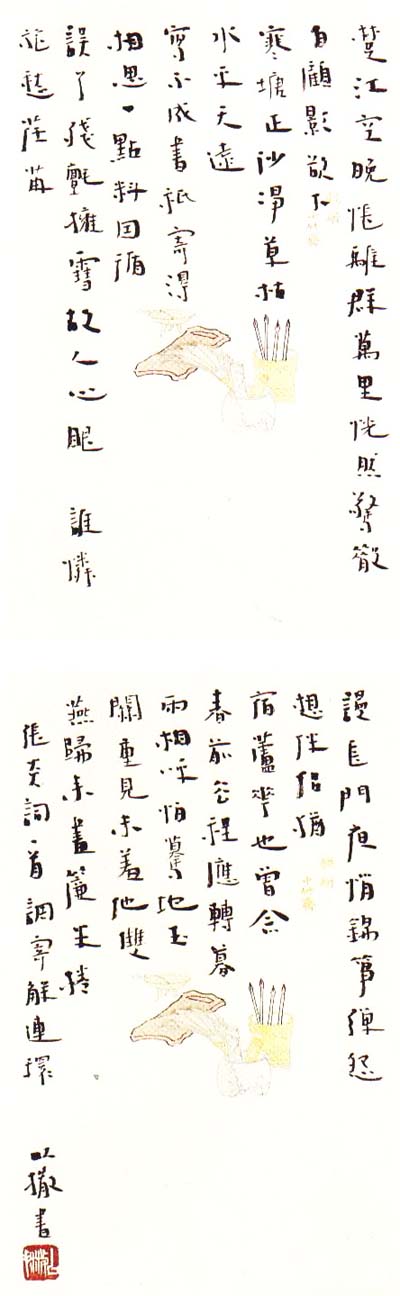 楚江空晚悵離群萬里恍然驚散
自顧影欲下
寒塘正沙淨草枯
水平天遠
寫不成書祇寄得
相思一點料因循
誤了殘氈擁雪故人心眼 誰憐
旅愁荏苒
謾長門夜悄錦箏彈怨
想伴侶猶
宿蘆花也曾念
春前去程應轉暮
雨相呼怕驀地玉
關重見未羞他雙
燕歸来畫簾半捲
張炎詞一首調寄解連環
以撒書